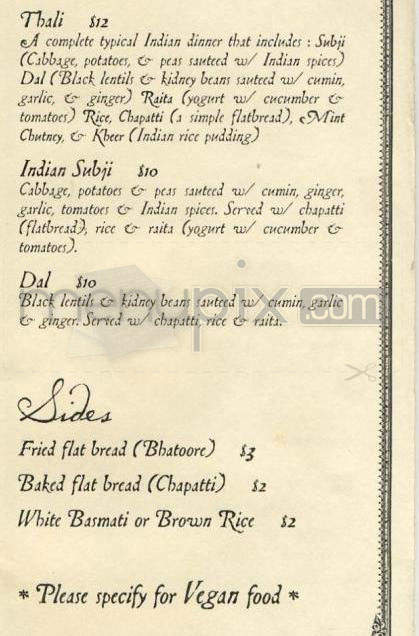 Thali $12
A complete typical Indian dinner that includes : Subji
(Cabbage, potatoes, & peas sauteed w/ Indian spices)
Dal (Black lentils & kidney beans sauteed w/ cumin,
garlic, & ginger) Raita (yogurt w/ cucumber &
tomatoes) Rice, Chapatti (a simple flatbread), Mint
Chutney, & Kheer (Indian rice pudding)
Indian Subji $10
Cabbage, potatoes & peas sauteed w/ cumin, ginger,
garlic, tomatoes & Indian spices. Served w/ chapatti
(flatbread), rice & raita (yogurt w/ cucumber &
tomatoes).
Dal $10
Black lentils & kidney beans sauteed w/ cumin, garlic
& ginger. Served w/ chapatti, rice & raita.
menupix.com
Sides
Fried flat bread (Bhatoore) $3
Baked flat bread (Chapatti) $2
White Basmati or Brown Rice $2
* Please specify for Vegan food *